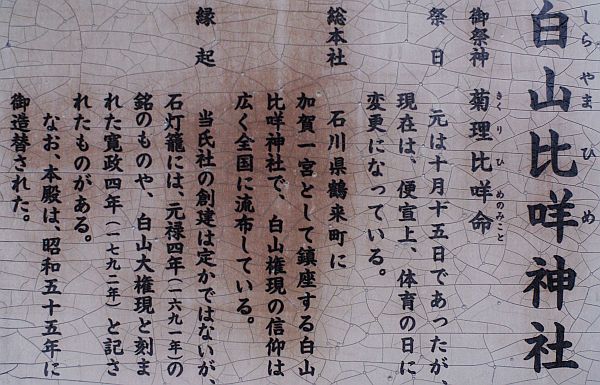 白山比咩神社
しらやまひめ
御祭神 菊理比咩命
きくりひめのみこと
祭日 元は十月十五日であったが、
現在は、便宜上、体育の日に
変更になっている。
総本社 石川県鶴来町に
加賀一宮として鎮座する白山
比咩神社で、白山権現の信仰は
広く全国に流布している。
縁起 当氏社の創建は定かではないが、
石灯籠には、元禄四年(一六九一年)の
銘のものや、白山大権現と刻ま
れた寛政四年(一七九二年)と記さ
れたものがある。
なお、本殿は、昭和五十五年に
御造替された。